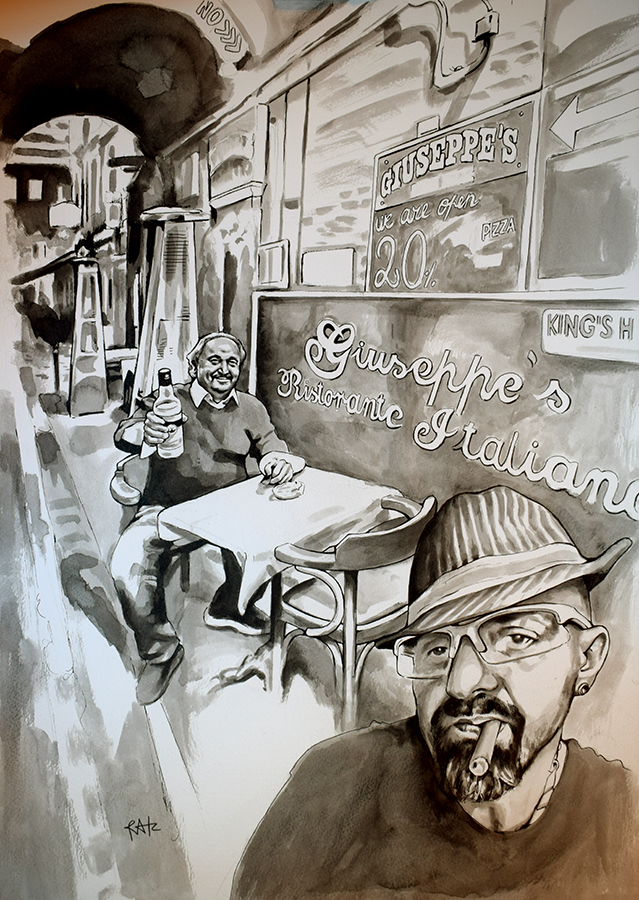 NO
GIUSEPPE'S
we are open
PIZZA
20%
KING'S H
Giuseppe's
Ristorante Italiano